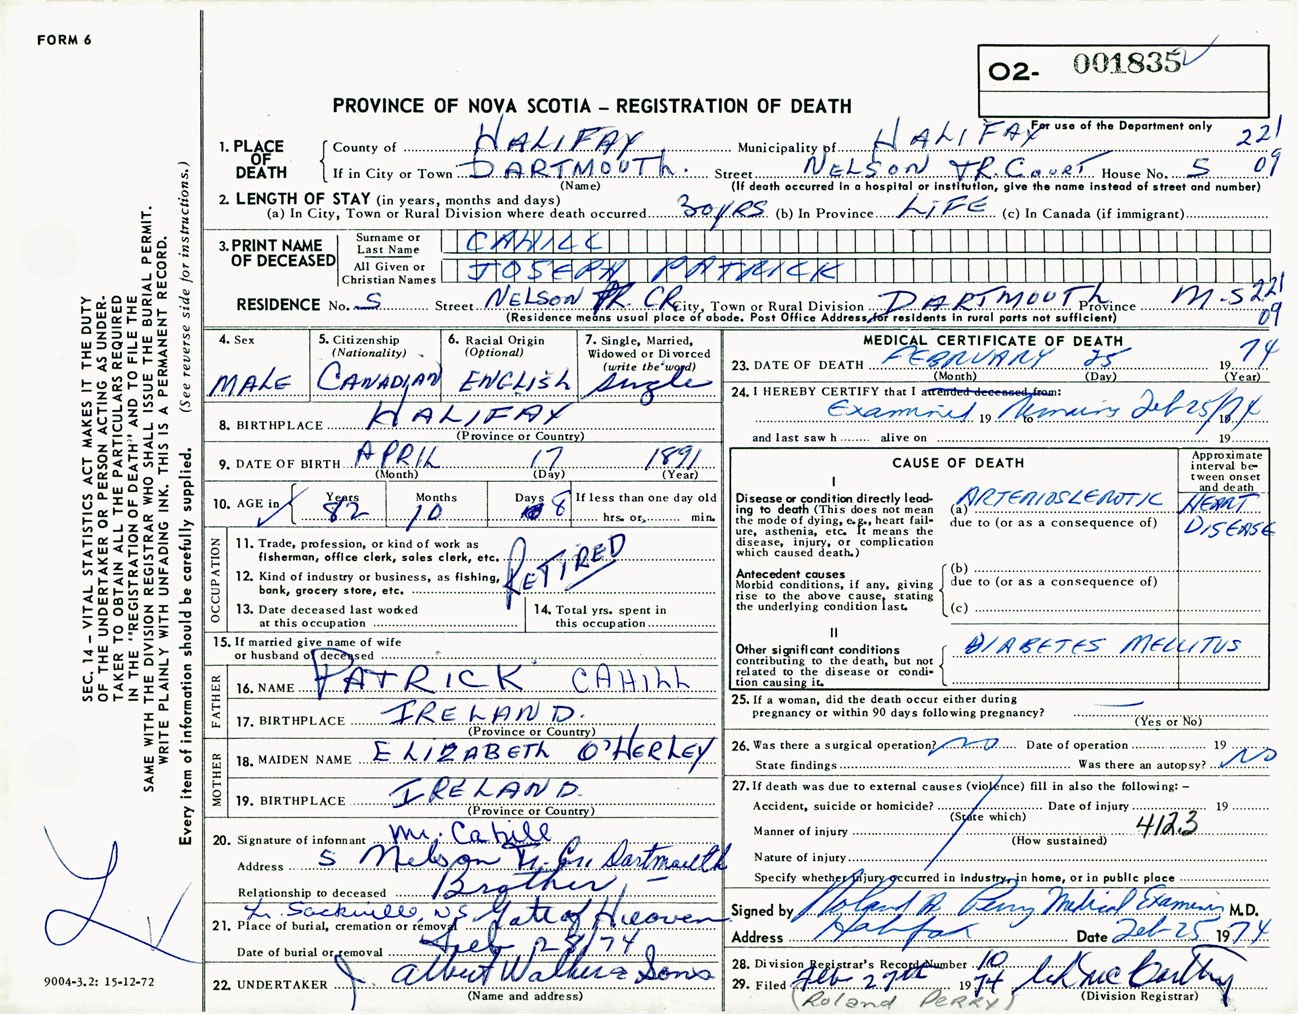 FORM 6
O2- 001835
For use of the Department only
PROVINCE OF NOVA SCOTIA – REGISTRATION OF DEATH
SEC. 14 – VITAL STATISTICS ACT MAKES IT THE DUTY
OF THE UNDERTAKER OR PERSON ACTING AS UNDER-
TAKER TO OBTAIN ALL THE PARTICULARS REQUIRED
IN THE "REGISTRATION OF DEATH" AND TO FILE THE
SAME WITH THE DIVISION REGISTRAR WHO SHALL ISSUE THE BURIAL PERMIT.
WRITE PLAINLY WITH UNFADING INK. THIS IS A PERMANENT RECORD.
Every item of information should be carefully supplied. (See reverse side for instructions.)
1. PLACE OF DEATH
County of HALIFAX Municipality of HALIFAX 221
If in City or Town DARTMOUTH. Street NELSON TR. COURT House No. 5 09
(Name) (If death occurred in a hospital or institution, give the name instead of street and number)
2. LENGTH OF STAY (in years, months and days)
(a) In City, Town or Rural Division where death occurred 30 YRS (b) In Province LIFE (c) In Canada (if immigrant)
3. PRINT NAME OF DECEASED
Surname or Last Name CAHILL
All Given or Christian Names JOSEPH PATRICK
RESIDENCE No. 5 Street NELSON TR. CR. City, Town or Rural Division DARTMOUTH Province N.S 221
(Residence means usual place of abode. Post Office Address for residents in rural parts not sufficient) 09
4. Sex MALE
5. Citizenship (Nationality) CANADIAN
6. Racial Origin (Optional) ENGLISH
7. Single, Married, Widowed or Divorced (write the word) Single
8. BIRTHPLACE HALIFAX
(Province or Country)
9. DATE OF BIRTH APRIL 17 1891
(Month) (Day) (Year)
10. AGE in Years 82 Months 10 Days 8 If less than one day old
hrs. or min.
OCCUPATION
11. Trade, profession, or kind of work as
fisherman, office clerk, sales clerk, etc.
RETIRED
12. Kind of industry or business, as fishing,
bank, grocery store, etc.
13. Date deceased last worked
at this occupation
14. Total yrs. spent in
this occupation
15. If married give name of wife
or husband of deceased
FATHER
16. NAME PATRICK CAHILL
17. BIRTHPLACE IRELAND.
(Province or Country)
MOTHER
18. MAIDEN NAME ELIZABETH O'HERLEY
19. BIRTHPLACE IRELAND
(Province or Country)
20. Signature of informant Mr. Cahill
Address 5 Nelson Tr. Crt. Dartmouth
Relationship to deceased Brother
L. Sackville, NS Gate of Heaven
21. Place of burial, cremation or removal
Date of burial or removal Feb 28/74
22. UNDERTAKER Albert Walker & Sons
(Name and address)
9004-3.2: 15-12-72
MEDICAL CERTIFICATE OF DEATH
23. DATE OF DEATH FEBRUARY 25 1974
(Month) (Day) (Year)
24. I HEREBY CERTIFY that I attended deceased from:
Examined 19 Remains to Feb 25/74 19
and last saw h alive on 19
CAUSE OF DEATH
Approximate interval between onset and death
I
Disease or condition directly lead-
ing to death (This does not mean
the mode of dying, e.g., heart fail-
ure, asthenia, etc. It means the
disease, injury, or complication
which caused death.)
(a) ARTERIOSLEROTIC HEART
due to (or as a consequence of) DISEASE
Antecedent causes
Morbid conditions, if any, giving
rise to the above cause, stating
the underlying condition last.
(b)
due to (or as a consequence of)
(c)
II
Other significant conditions
contributing to the death, but not
related to the disease or condi-
tion causing it.
DIABETES MELLITUS
25. If a woman, did the death occur either during
pregnancy or within 90 days following pregnancy?
(Yes or No)
26. Was there a surgical operation? no Date of operation 19
State findings Was there an autopsy? NO
27. If death was due to external causes (violence) fill in also the following: –
Accident, suicide or homicide? Date of injury 19
(State which)
Manner of injury 412.3
(How sustained)
Nature of injury
Specify whether injury occurred in industry, in home, or in public place
Signed by Roland R Perry Medical Examiner M.D.
Address Halifax Date Feb 25 1974
28. Division Registrar's Record Number 10
29. Filed Feb 27th 1974
(Division Registrar)
(Roland PERRY)